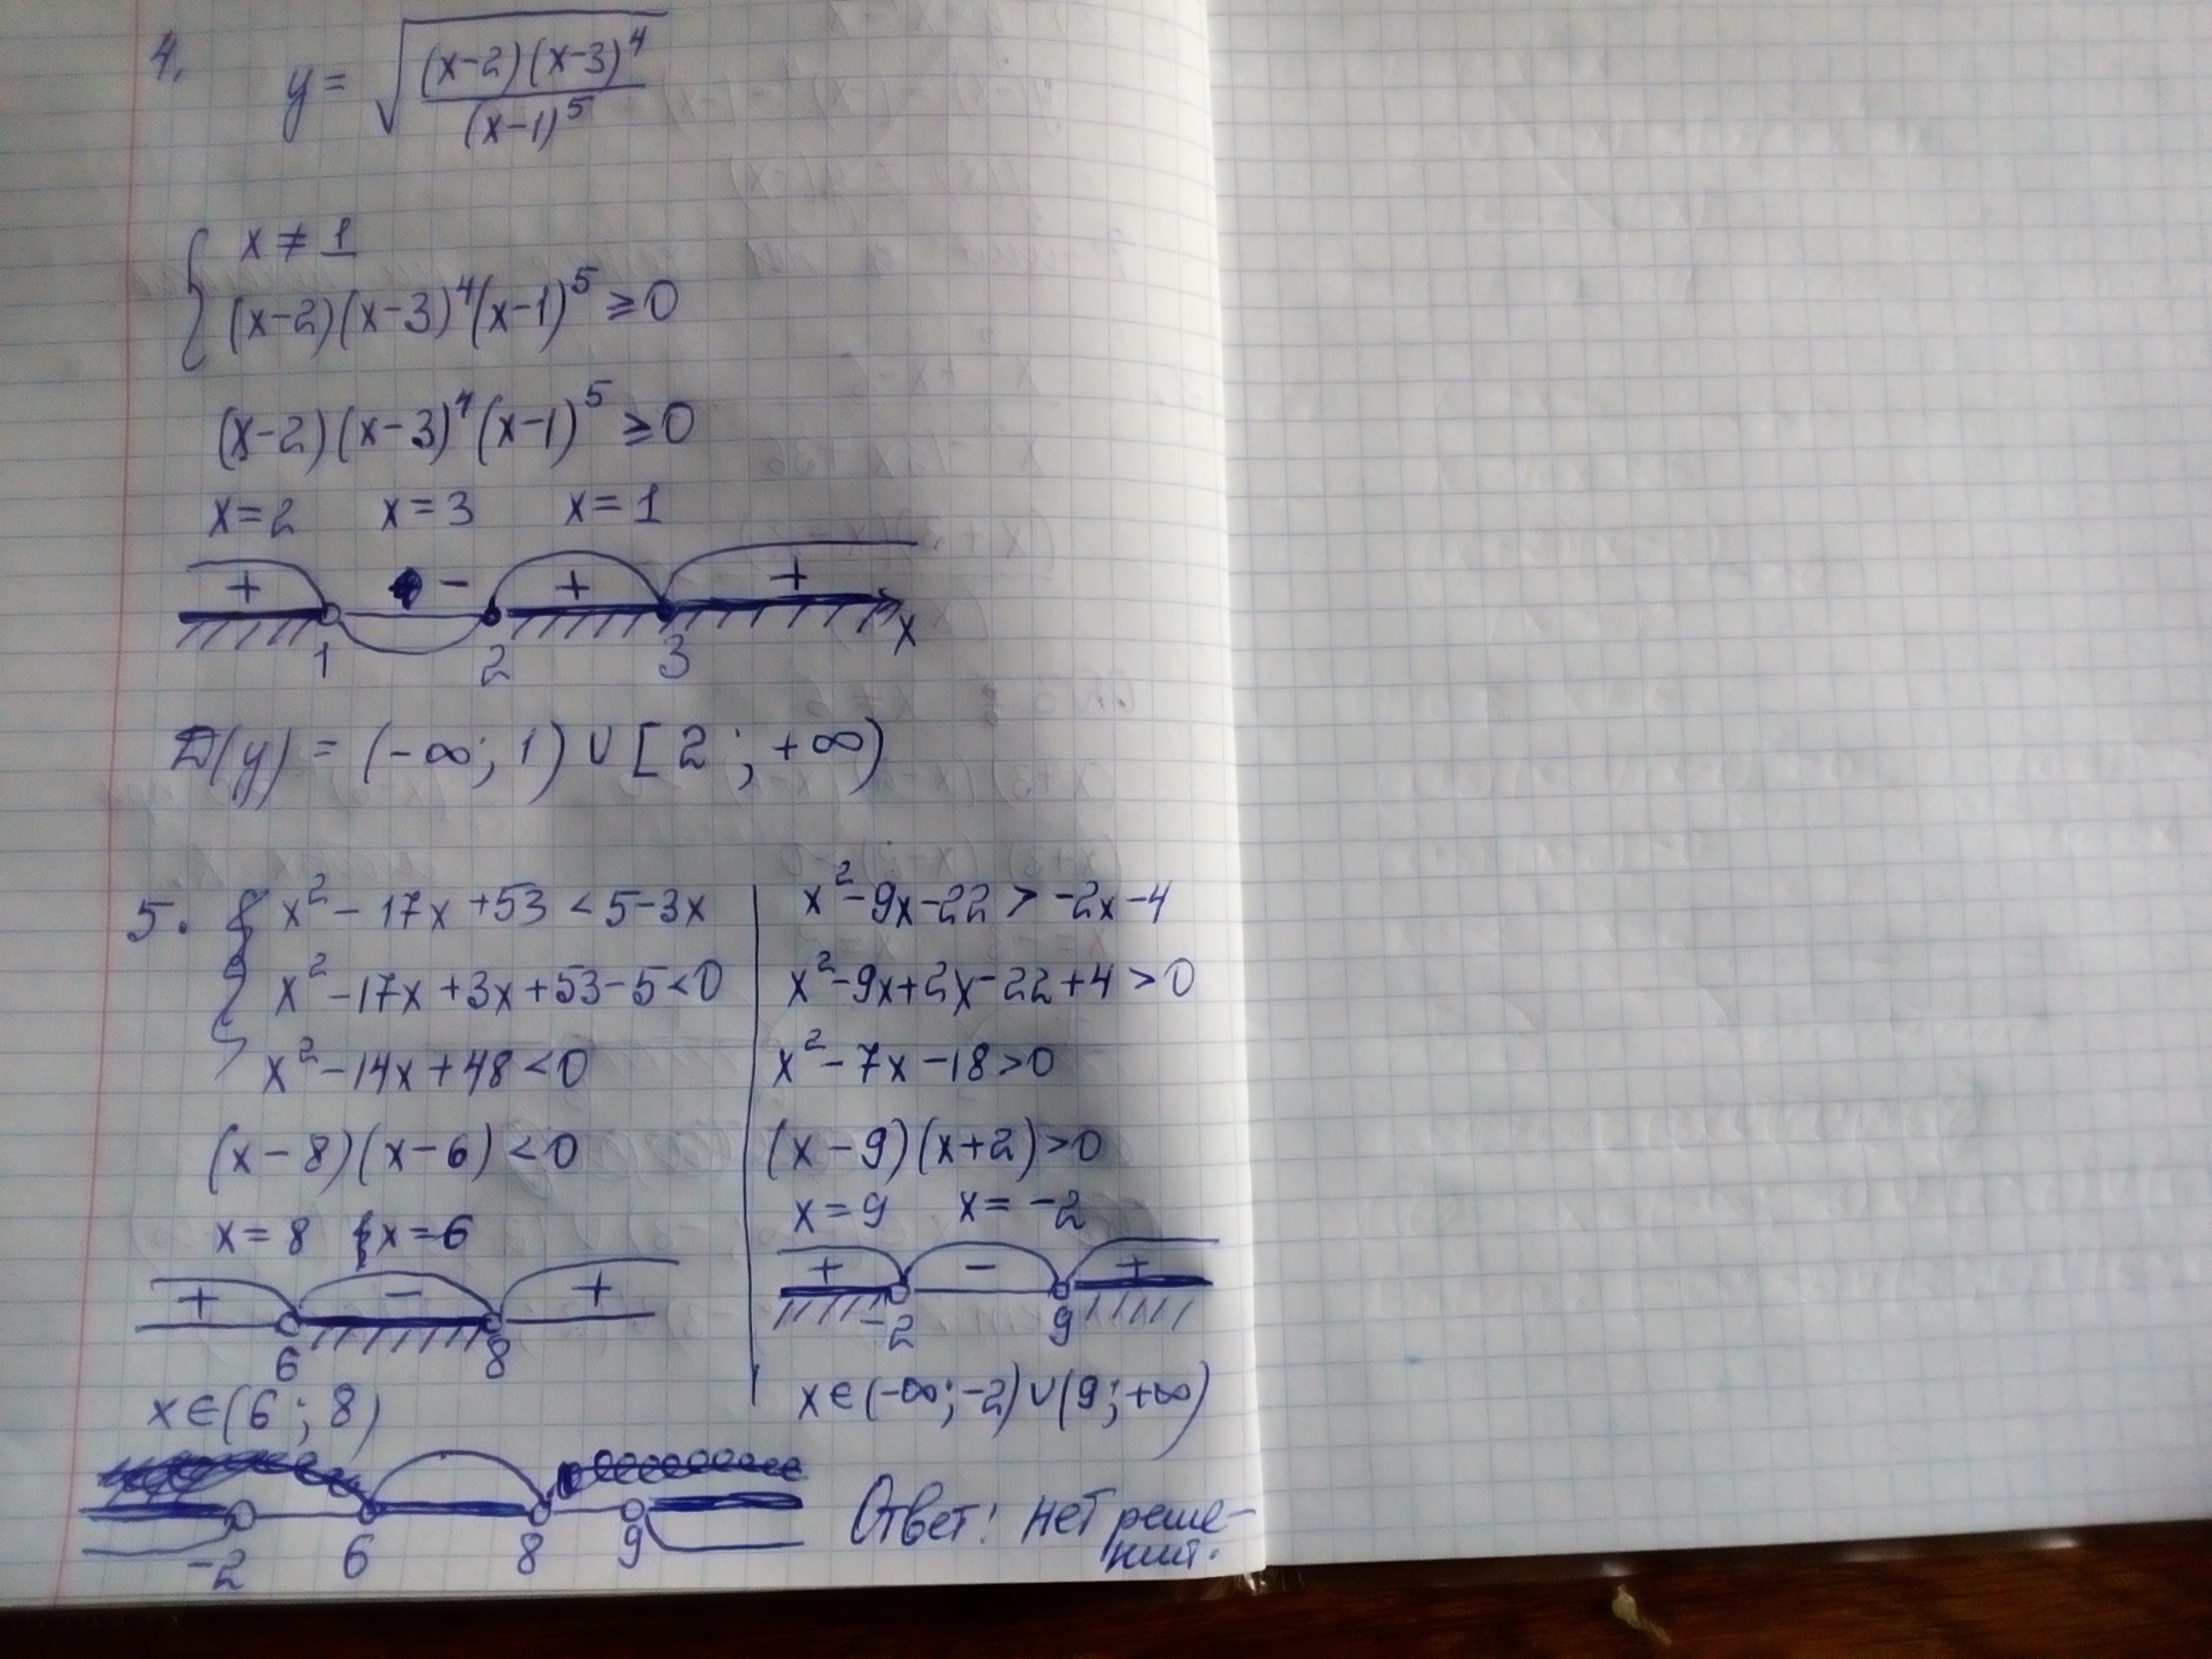 4. y = √((x-2)(x-3)⁴/(x-1)⁵)
{ x ≠ 1
(x-2)(x-3)⁴(x-1)⁵ ≥ 0
(x-2)(x-3)⁴(x-1)⁵ ≥ 0
x=2 x=3 x=1
+ - + +
1 2 3 x
D(y) = (-∞; 1) ∪ [2; +∞)
5. { x² - 17x + 53 < 5 - 3x
x² - 17x + 3x + 53 - 5 < 0
x² - 14x + 48 < 0
(x-8)(x-6) < 0
x = 8 x = 6
+ - +
6 8
x ∈ (6; 8)
x² - 9x - 22 > -2x - 4
x² - 9x + 2x - 22 + 4 > 0
x² - 7x - 18 > 0
(x-9)(x+2) > 0
x = 9 x = -2
+ - +
-2 9
x ∈ (-∞; -2) ∪ (9; +∞)
-2 6 8 9
Ответ: нет реше-
ний.